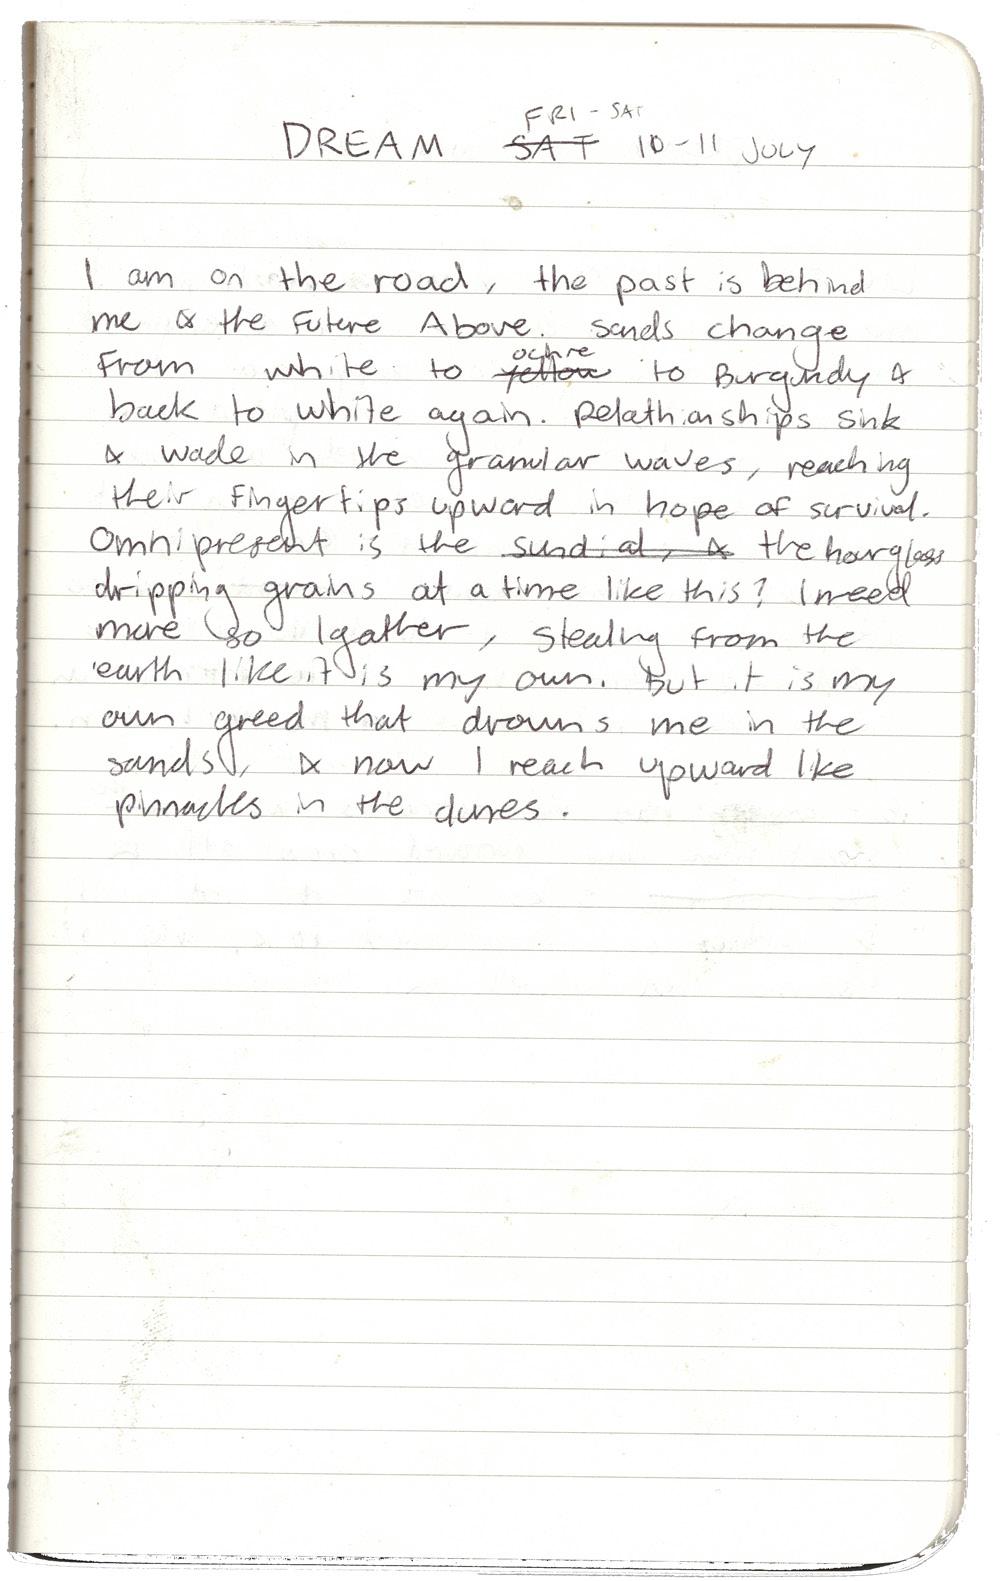 FRI - SAT
DREAM SAT 10-11 JULY
I am on the road, the past is behind
me & the Future Above. Sands change
From white to yellow ochre to Burgundy &
back to white again. Relathionships sink
& wade in the granular waves, reaching
their fingertips upward in hope of survival.
Omnipresent is the sundial, & the hourglass
dripping grains at a time like this? I need
more so I gather, stealing from the
earth like it is my own. But it is my
own greed that drowns me in the
sands, & now I reach upward like
pinnacles in the dunes.